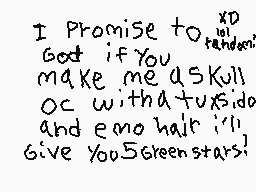 I Promise to XD
lol random!
God if You
make me a Skull
oc with a tuxsido
and emo hair i'll
Give You 5 Green stars!